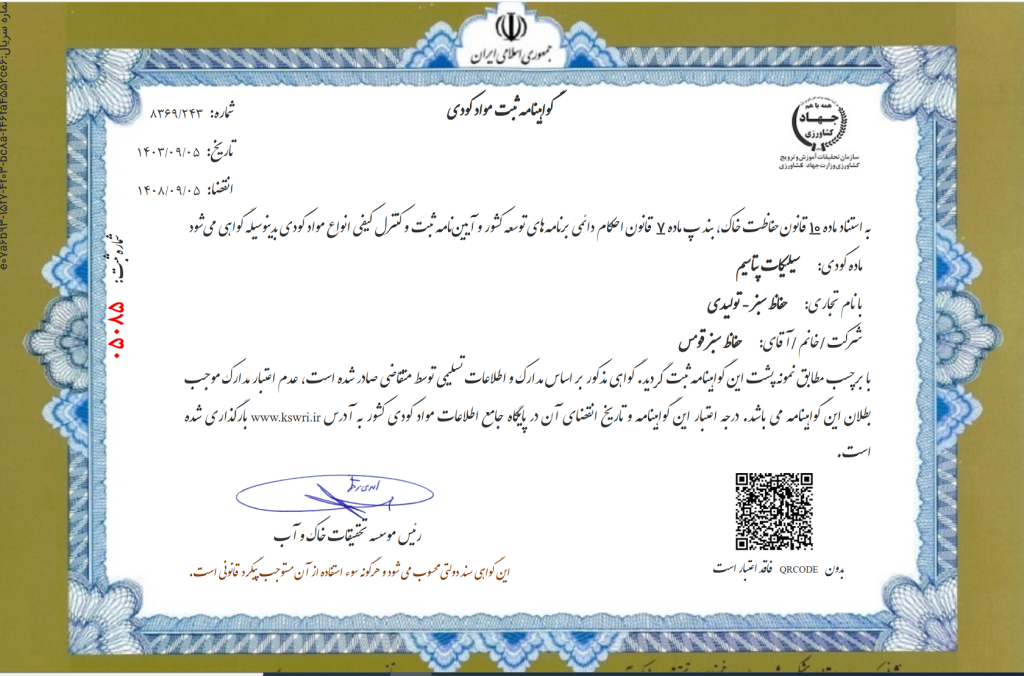 جمهوری اسلامی ایران
گواهینامه ثبت مواد کودی
همه با هم
جهاد
کشاورزی
سازمان تحقیقات، آموزش و ترویج
کشاورزی وزارت جهاد کشاورزی
شماره: ۸۳۶۹/۲۴۳
تاریخ: ۱۴۰۳/۰۹/۰۵
انقضا: ۱۴۰۸/۰۹/۰۵
به استناد ماده ۱۰ قانون حفاظت خاک، بند پ ماده ۷ قانون احکام دائمی برنامه های توسعه کشور و آیین‌نامه ثبت و کنترل کیفی انواع مواد کودی بدینوسیله گواهی می‌شود
ماده کودی: سیلیکات پتاسیم
با نام تجاری: حفاظ سبز - تولیدی
شرکت / خانم / آقای: حفاظ سبز قومس
با برچسب مطابق نمونه پشت این گواهینامه ثبت گردید. گواهی مذکور بر اساس مدارک و اطلاعات تسلیمی توسط متقاضی صادر شده است، عدم اعتبار مدارک موجب
بطلان این گواهینامه می باشد. درجه اعتبار این گواهینامه و تاریخ انقضای آن در پایگاه جامع اطلاعات مواد کودی کشور به آدرس www.kswri.ir بارگذاری شده
است.
شماره ثبت:
۰۵۰۸۵
رئیس موسسه تحقیقات خاک و آب
این گواهی سند دولتی محسوب می شود و هرگونه سوء استفاده از آن مستوجب پیگرد قانونی است.
بدون QRCODE فاقد اعتبار است